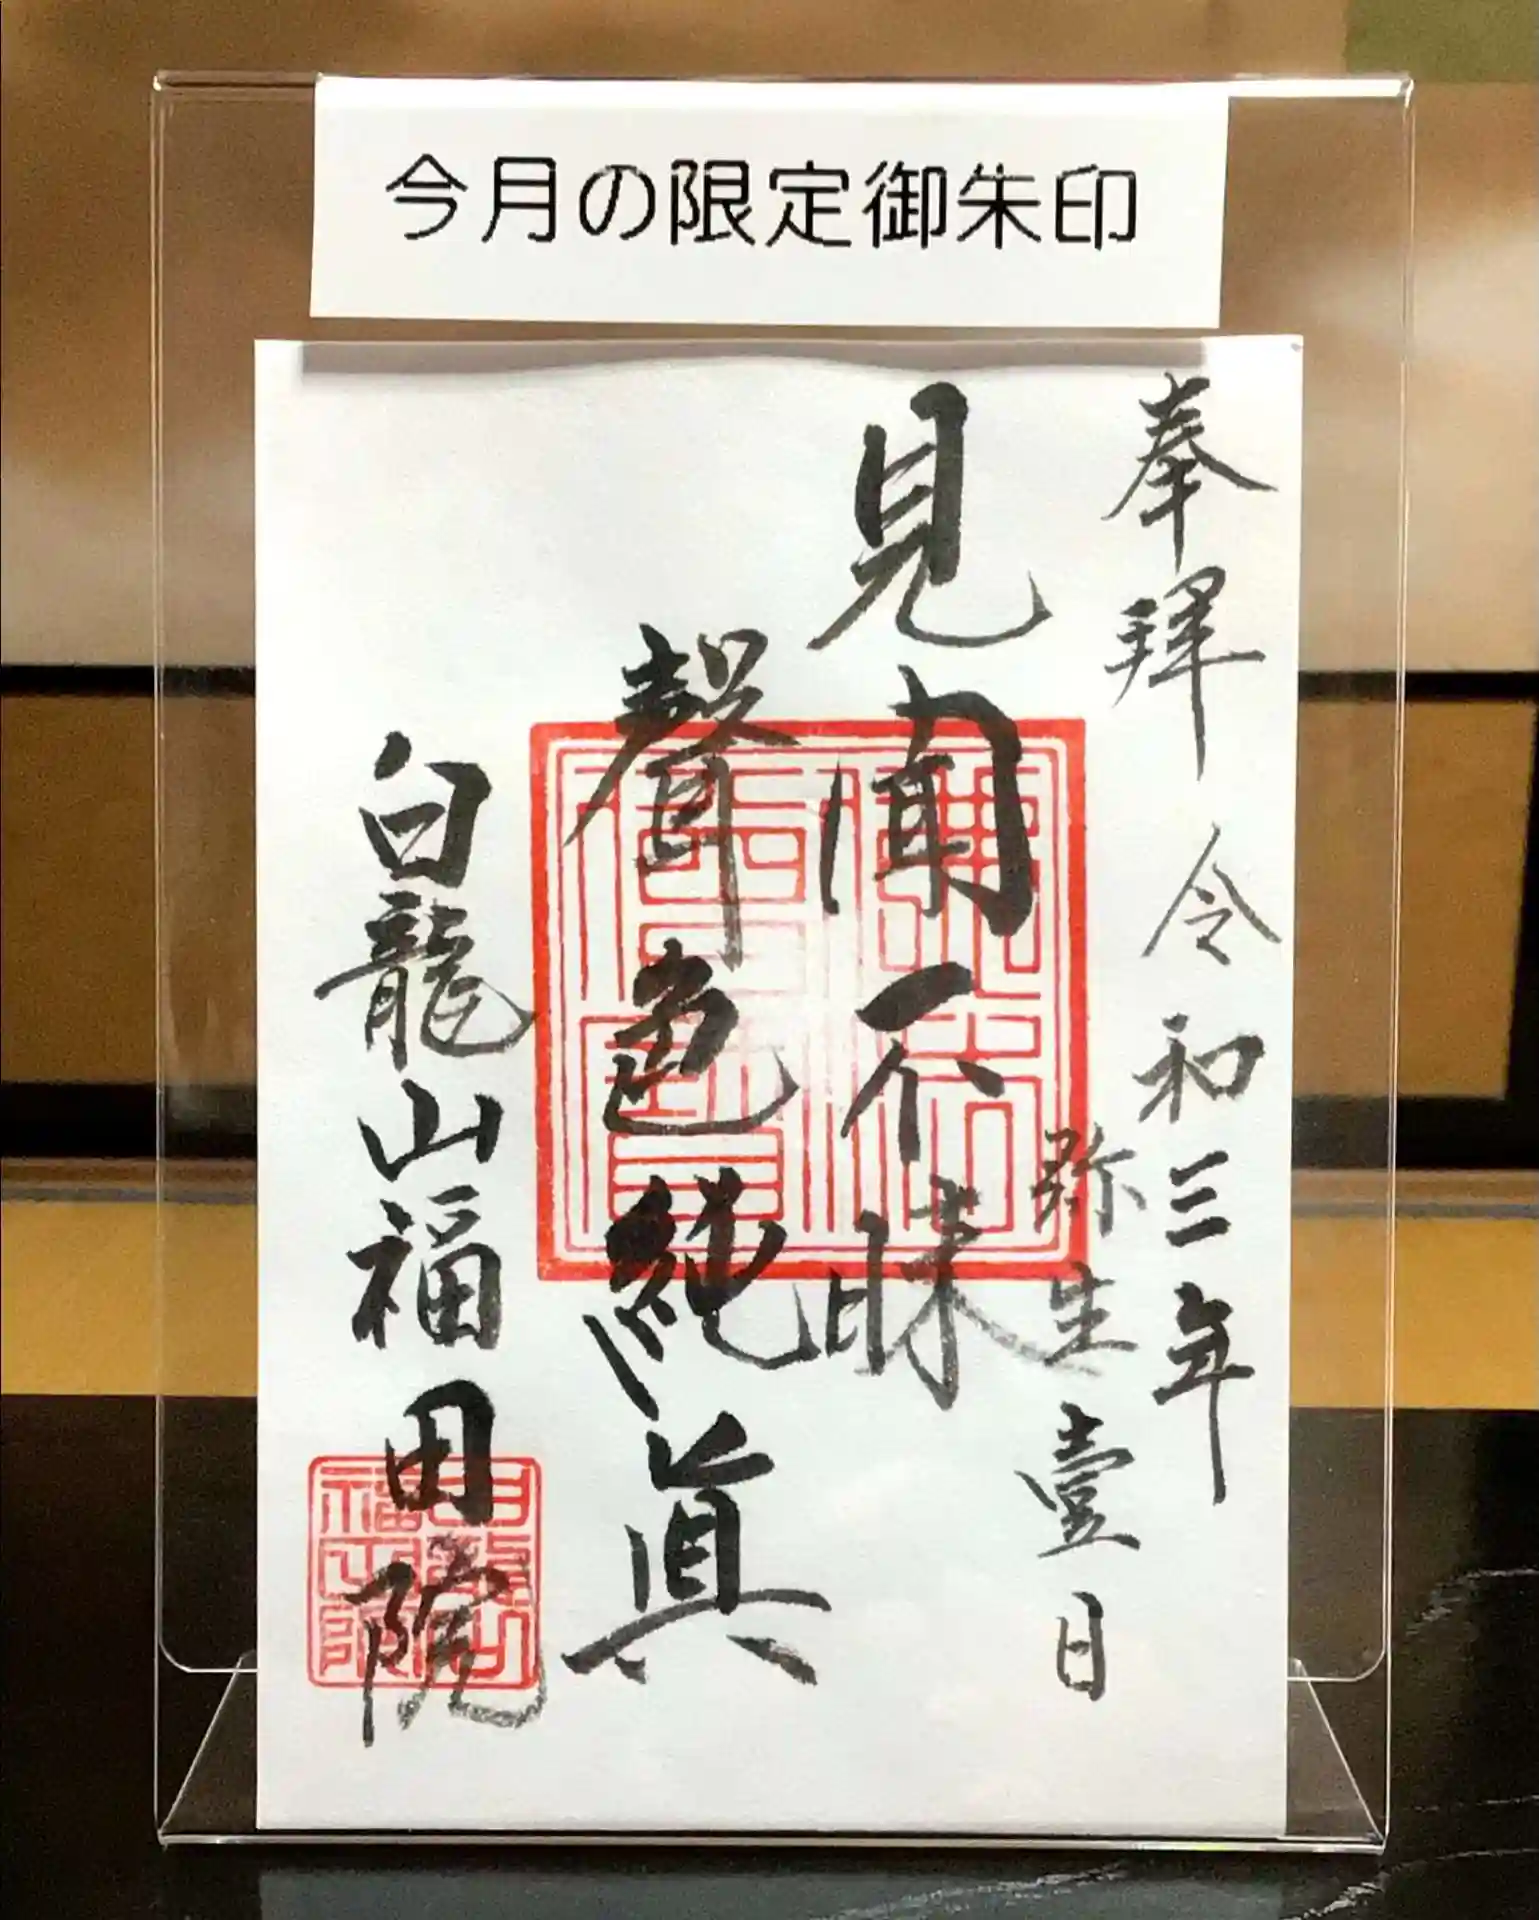 今月の限定御朱印
奉拝 令和三年
弥生壹日
見聞不昧
聲色純眞
白龍山福田院